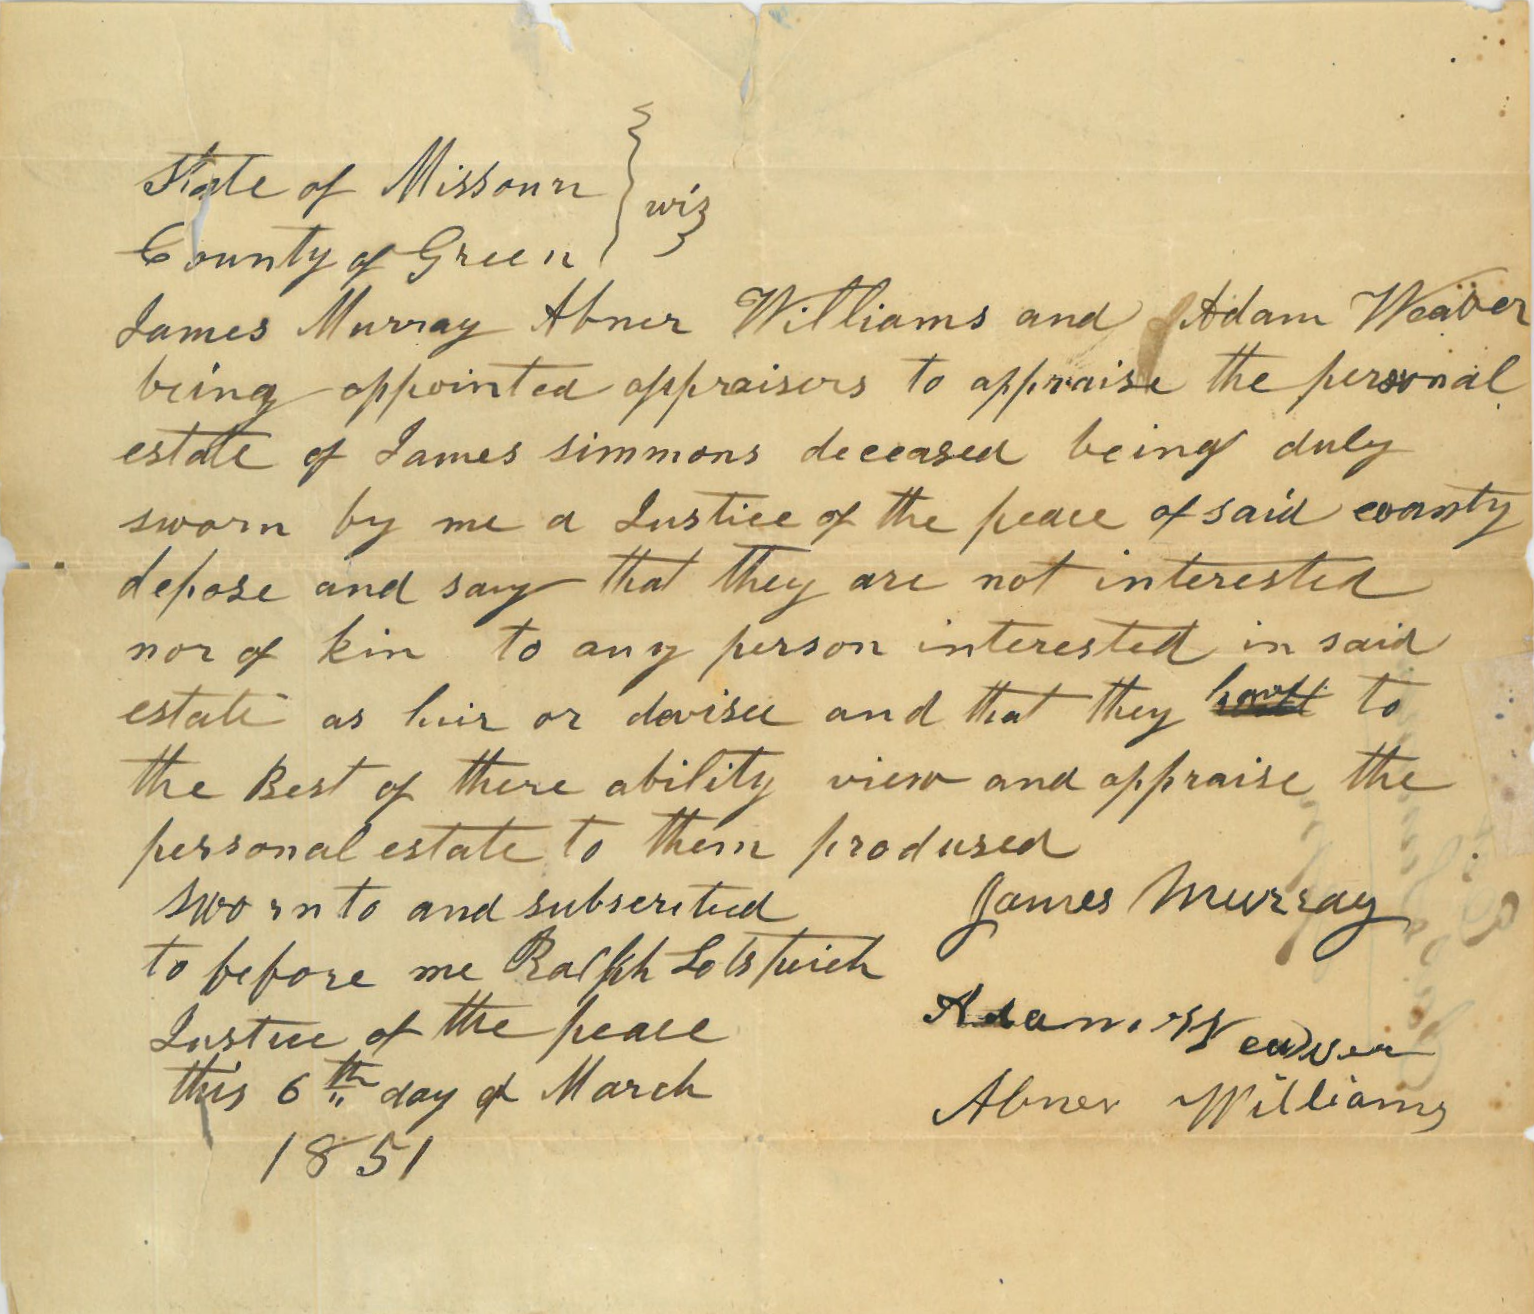 State of Missouri
County of Green } wiz
James Murray Abner Williams and Adam Weaver
being appointed appraisers to appraise the personal
estate of James simmons deceased being duly
sworn by me a Justice of the peace of said county
depose and say that they are not interested
nor of kin to any person interested in said
estate as heir or devisee and that they to
the Best of there ability view and appraise the
personal estate to them prodused
sworn to and subscribed James Murray
to before me Ralph
Justice of the peace Adam Weaver
this 6th day of March Abner Williams
1851